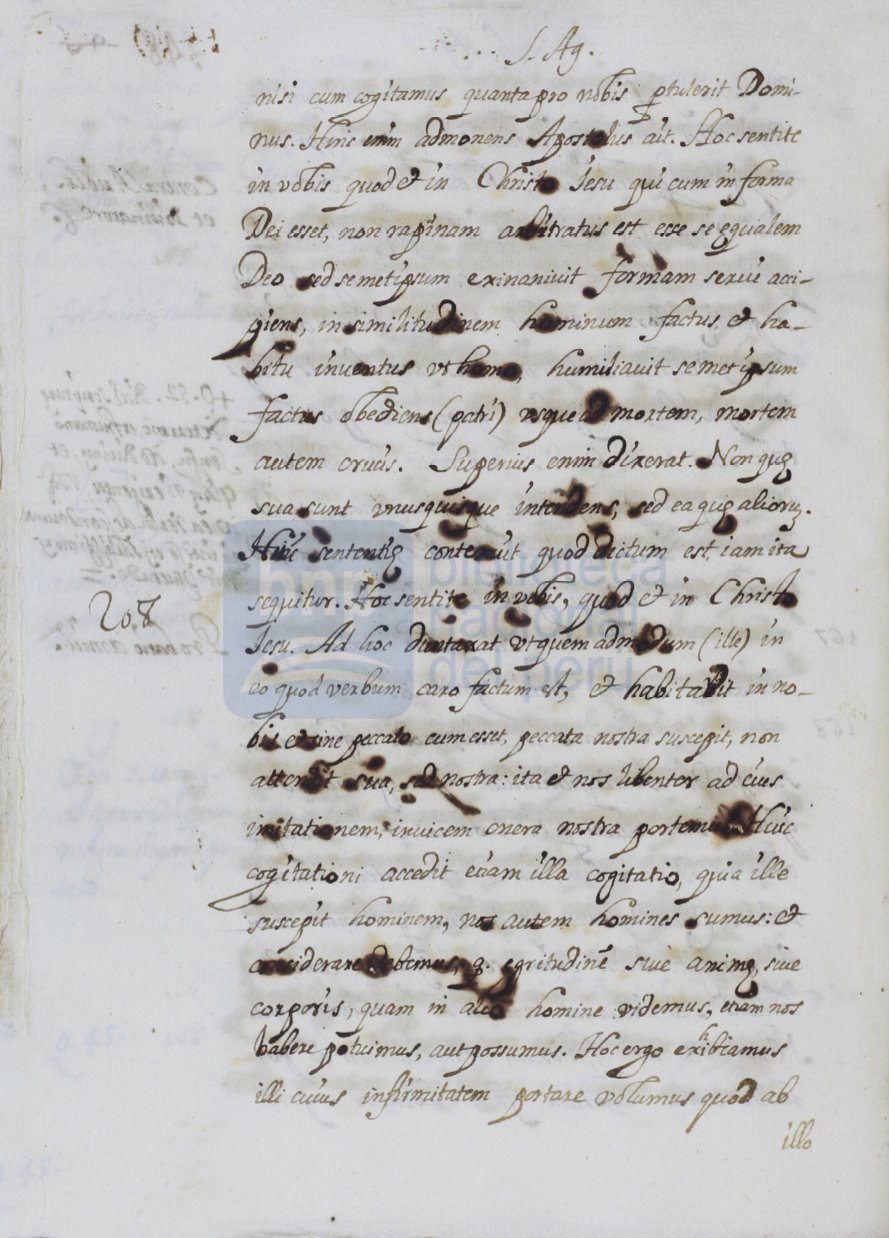 S. Ag.
nisi cum cogitamus quanta pro nobis ptulerit Domi-
nus. Hinc enim admonens Apostolus ait. Hoc sentite
in vobis quod et in Christo Iesu qui cum in forma
Dei esset, non rapinam arbitratus est esse se equalem
Deo sed semetipsum exinanivit formam servi acci-
piens, in similitudinem hominum factus, et ha-
bitu inventus vt homo, humiliavit semetipsum
factus obediens (patri) usque ad mortem, mortem
autem crucis. Superius enim dixerat. Non quę
sua sunt unusquisque intendens, sed ea quę alioruz.
Huic sententię conteruit quod dictum est, iam ita
sequitur. Hoc sentite in vobis, quod et in Christo
208
Iesu. Ad hoc duntaxat vt quem admodum (ille) in
eo quod verbum caro factum est, et habitavit in no-
bis et sine peccato cum esset, peccata nostra suscepit, non
attendit sua, sed nostra: ita et nos libenter ad eius
imitationem, invicem onera nostra portemus. Huic
cogitationi accedit etiam illa cogitatio, quia ille
suscepit hominem, nos autem homines sumus: et
considerare debemus, q. egritudinē sive animę, sive
corporis, quam in alio homine videmus, etiam nos
habere potuimus, aut possumus. Hoc ergo exhibeamus
illi cuius infirmitatem portare volumus quod ab
illo
biblioteca
nacional
del perú